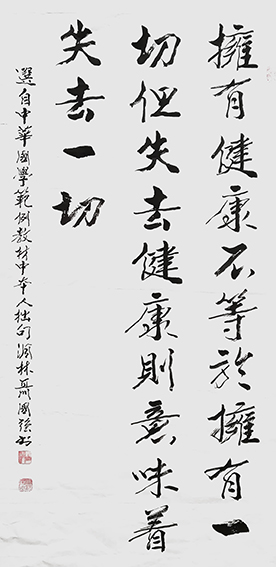 擁有健康不等於擁有一
切但失去健康則意味着
失去一切
選自中華國學範例教材中本人拙句